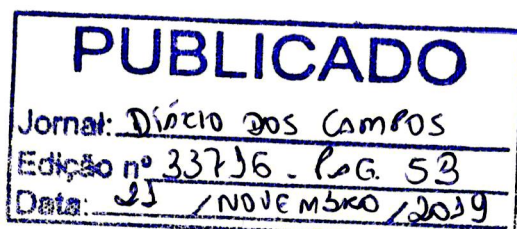 PUBLICADO
Jornal: DIÁRIO DOS CAMPOS
Edição nº 33716 - PAG. 53
Data: 21 / NOVEMBRO / 2019